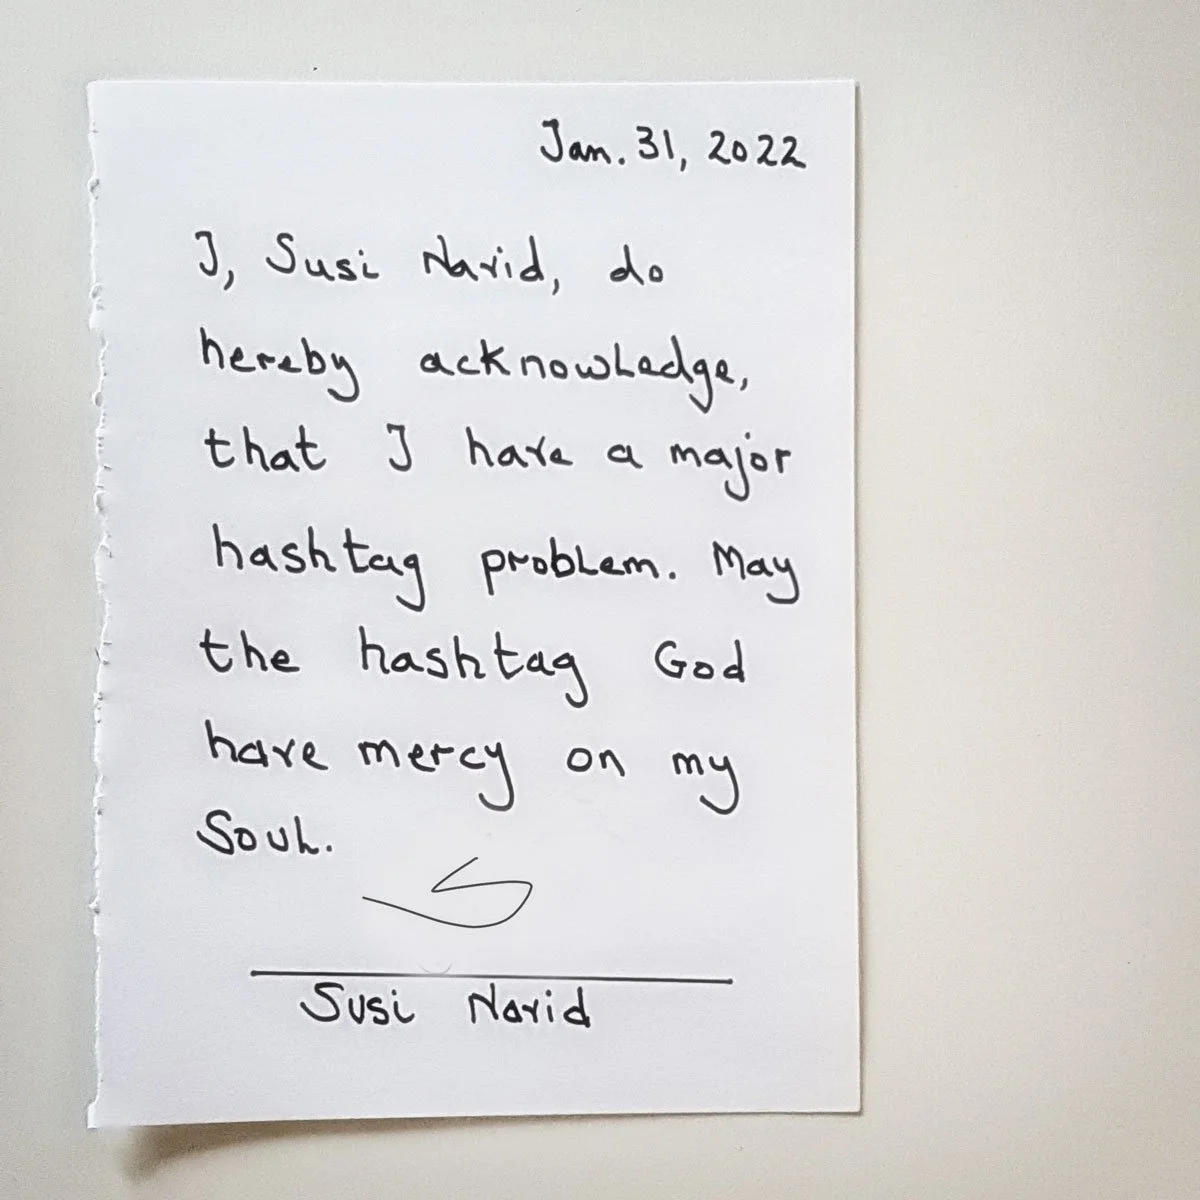 Jan. 31, 2022
I, Susi Navid, do
hereby acknowledge,
that I have a major
hashtag problem. May
the hashtag God
have mercy on my
Soul.
S
Susi Navid